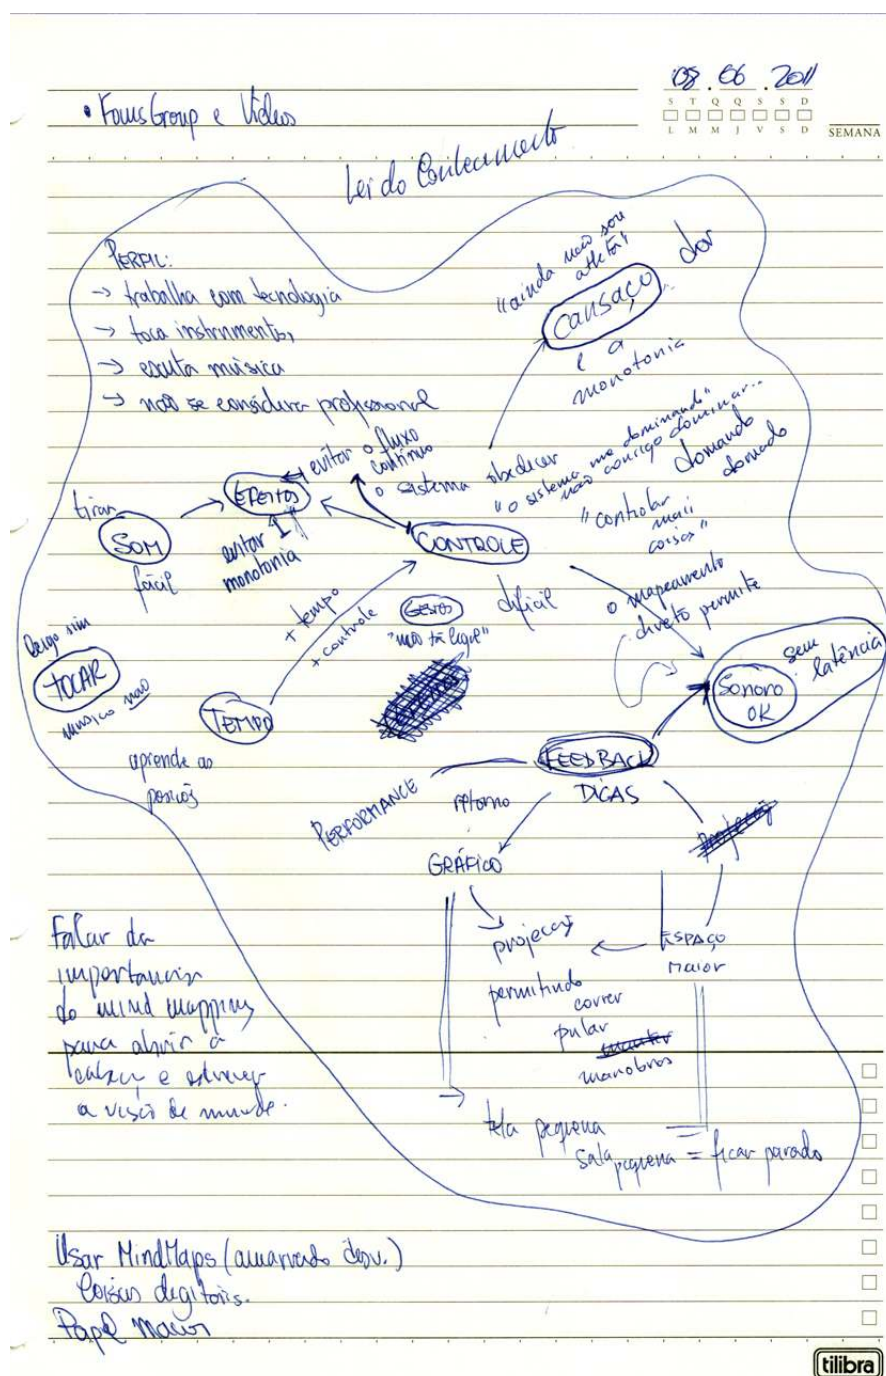 08.06.2011
S T Q Q S S D
L M M J V S D
SEMANA
• FocusGroup e Vídeos
Lei do
PERFIL:
→ trabalha com tecnologia
→ toca instrumentos,
→ escuta música
→ não se considera profissional
"ainda não sou
atleta"
dor
cansaço
e a
monotonia
evitar o fluxo
contínuo
o sistema obedecer
"o sistema me dominando"
não consigo dominar...
domando
domado
"controlar
mais
coisas"
tirar
SOM
fácil
EFEITOS
evitar
monotonia
CONTROLE
difícil
o mapeamento
direto permite
+ tempo
+ controle
GESTOS
"não tá legal"
sim
TOCAR
músico não
TEMPO
aprende aos
poucos
sem
latência
Sonoro
OK
FEEDBACK
DICAS
PERFORMANCE
retorno
GRÁFICO
projeção
projeção
ESPAÇO
maior
permitindo
correr
pular
manobras
tela pequena
sala pequena = ficar parado
Falar da
importancia
do mind mapping
para abrir a
cabeça e
a visão de mundo.
Usar MindMaps (
Coisas digitais.
Papel maior
tilibra